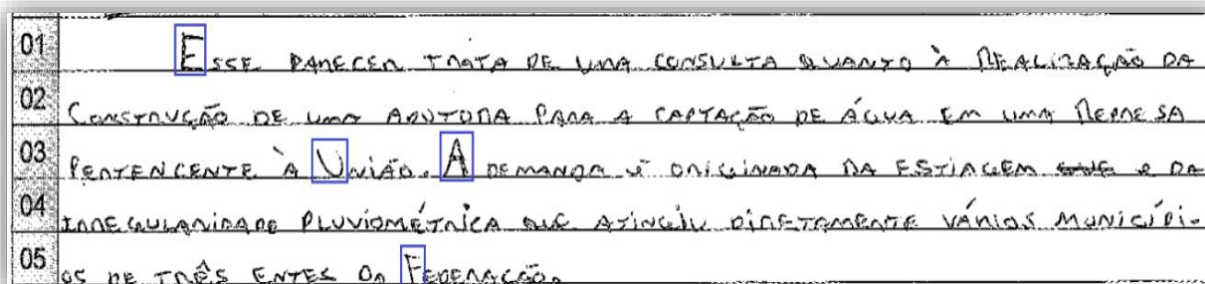 01 ESSE PARECER TRATA DE UMA CONSULTA QUANTO À REALIZAÇÃO DA
02 CONSTRUÇÃO DE UMA ADUTORA PARA A CAPTAÇÃO DE ÁGUA EM UMA REPRESA
03 PERTENCENTE À UNIÃO. A DEMANDA É ORIGINADA DA ESTIAGEM E DA
04 IRREGULARIDADE PLUVIOMÉTRICA QUE ATINGIU DIRETAMENTE VÁRIOS MUNICÍPI-
05 OS DE TRÊS ENTES DA FEDERAÇÃO.